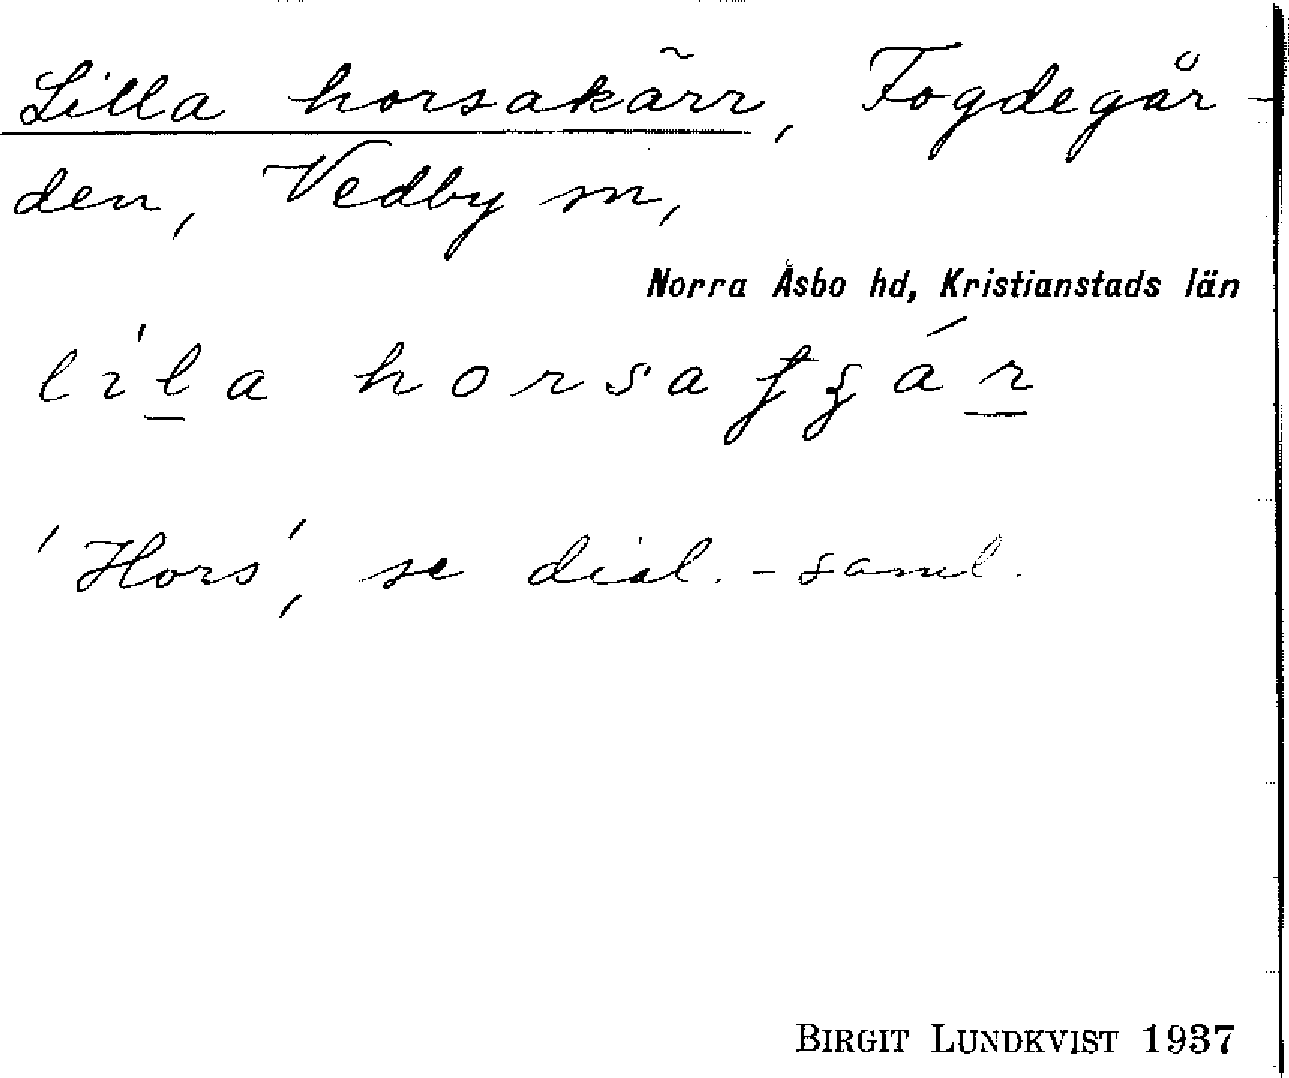 Lilla horsakärr, Fogdegår-
den, Vedby sn,
Norra Åsbo hd, Kristianstads län
li'la horsa
'Hors', se dial.-saml.
BIRGIT LUNDKVIST 1937